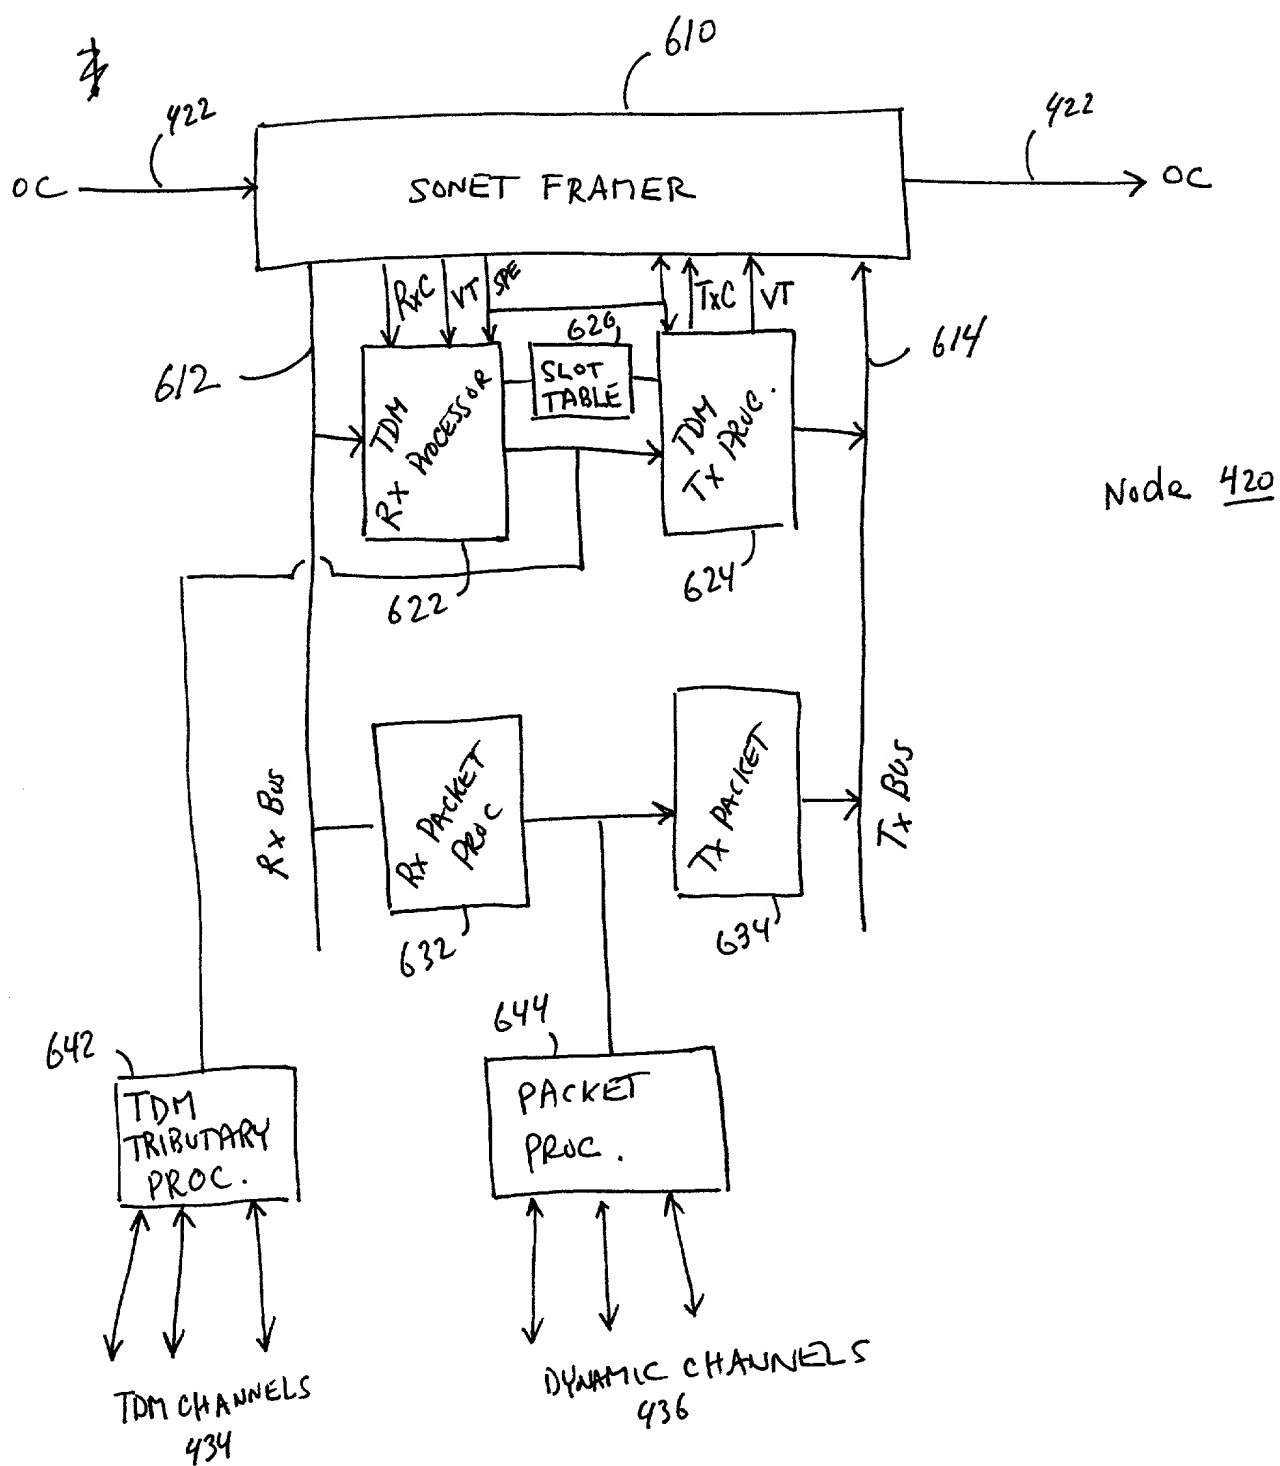 610
422
422
OC
SONET FRAMER
OC
RxC
VT
SPE
TxC
VT
626
612
614
SLOT
TABLE
TDM
Rx PROCESSOR
TDM
Tx PROC.
Node 420
622
624
Rx Bus
Rx PACKET
PROC
Tx PACKET
Tx BUS
632
634
642
644
TDM
TRIBUTARY
PROC.
PACKET
PROC.
TDM CHANNELS
434
DYNAMIC CHANNELS
436